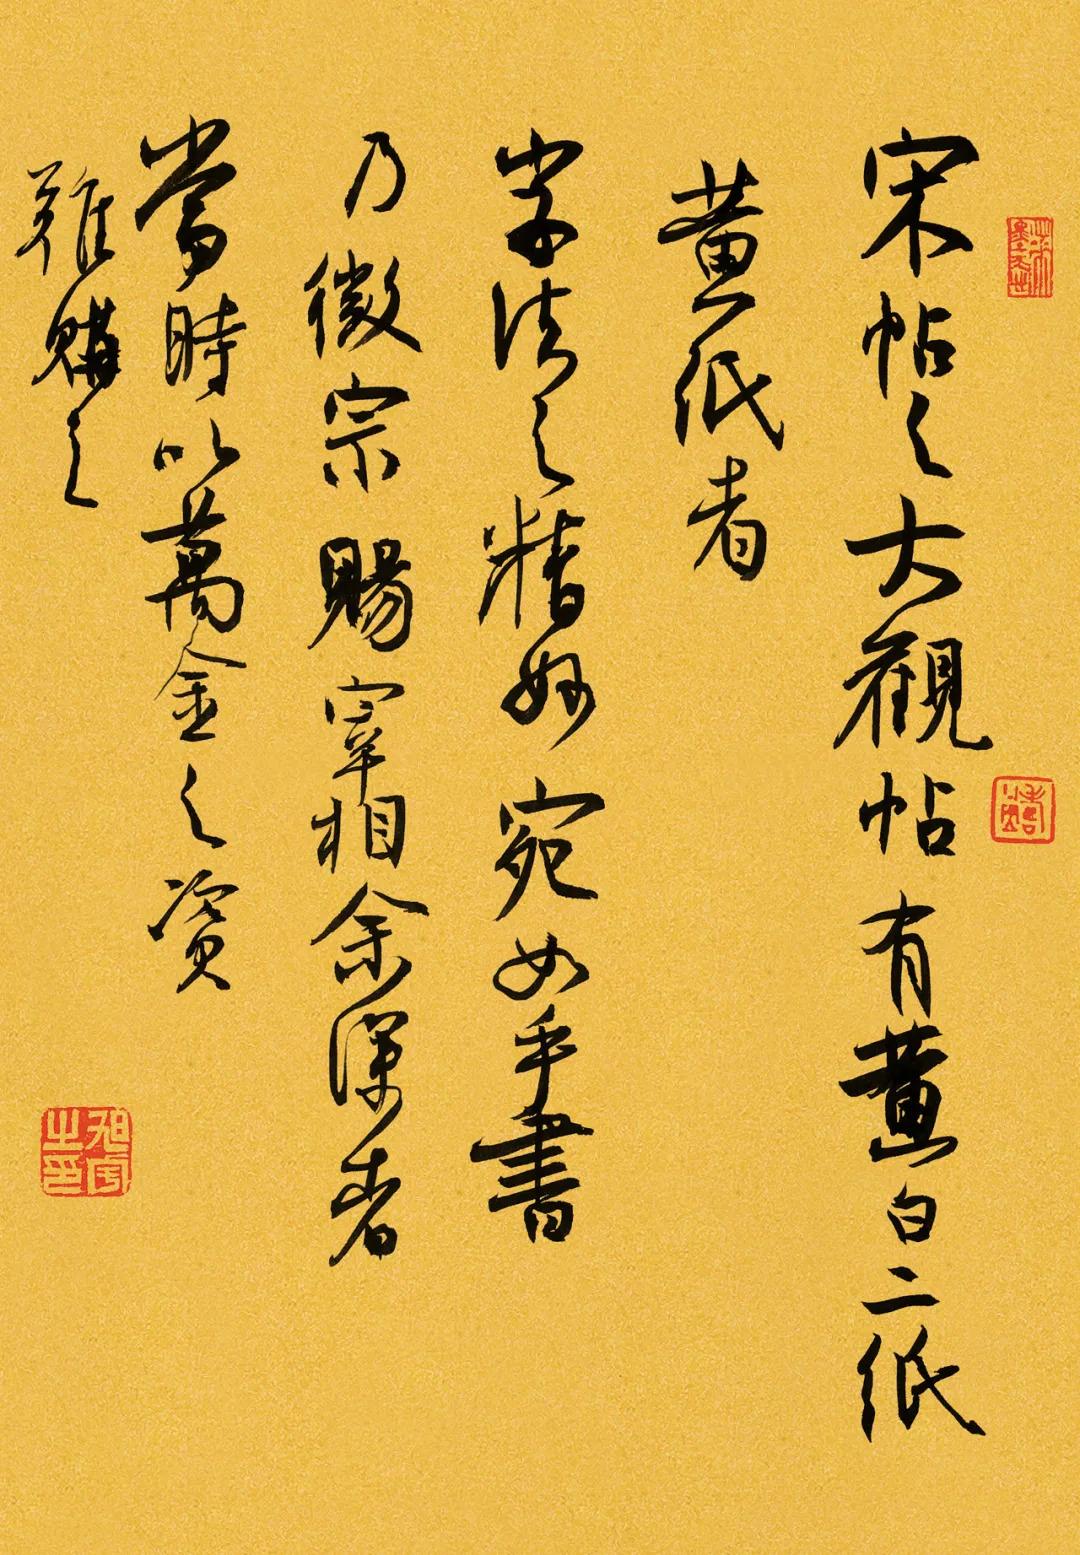 宋帖之大觀帖有黄白二紙
黄紙者
字法之精妙宛如手書
乃徽宗賜宰相余深者
當時以萬金之資
難購之